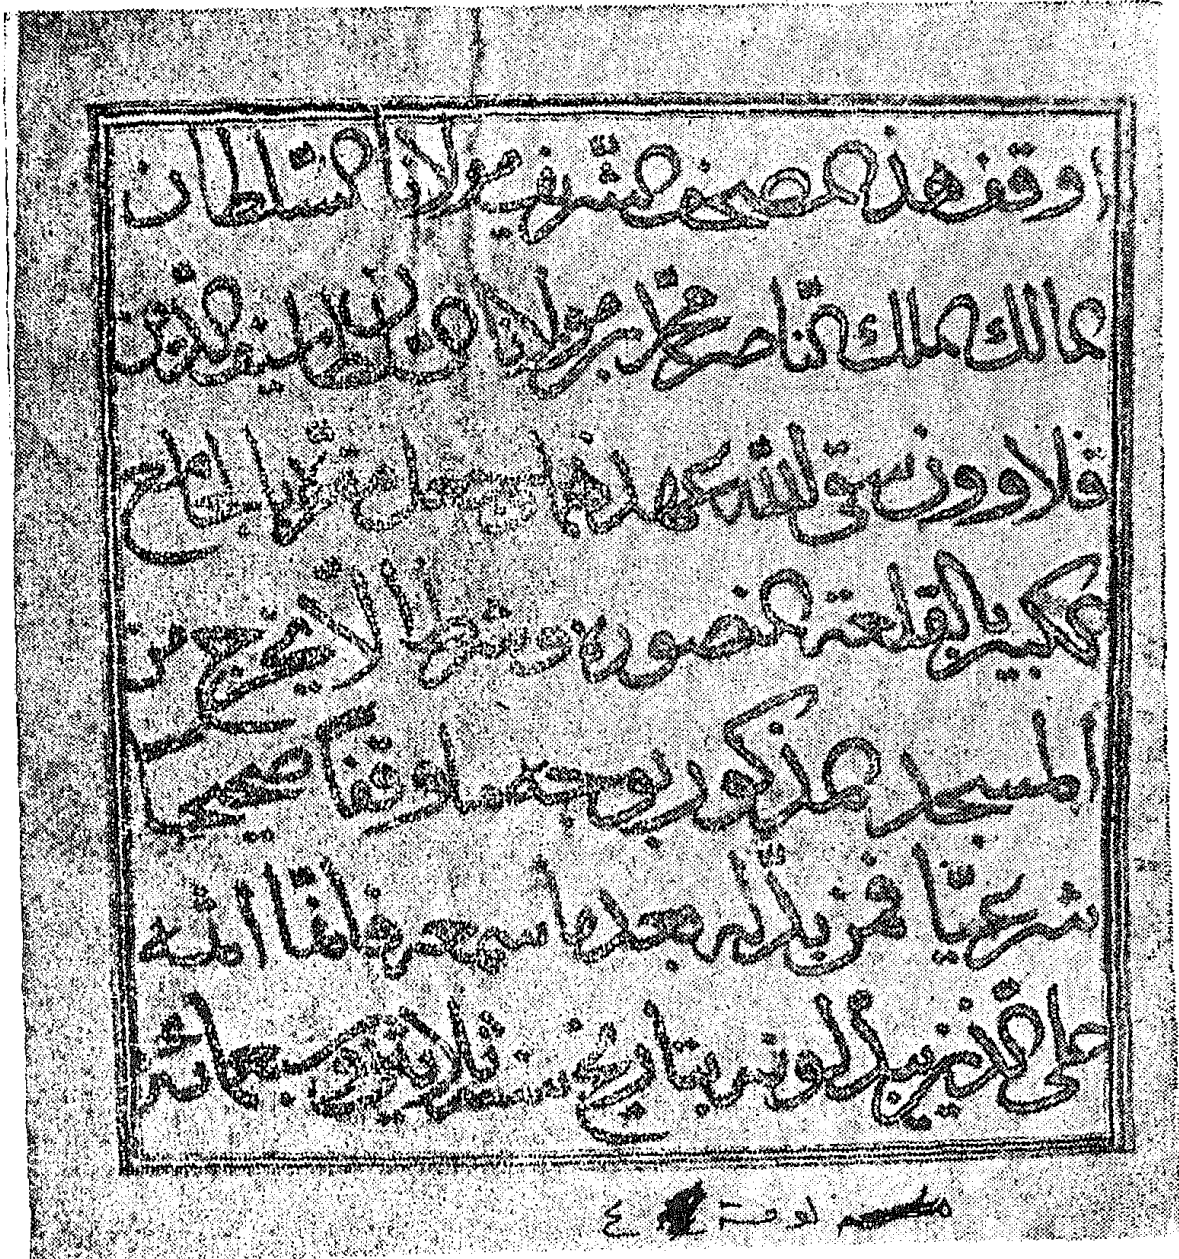 اوقف هذا المصحف الشريف مولانا السلطان
المالك الملك الناصر محمد بن مولانا السلطان المنصور
قلاوون سقى الله عهدهما بالجامع
الكبير بالقلعة المنصورة وشرط ان لا يخرج من
المسجد المذكور بوجه ما وقفا صحيحا
شرعيا فمن بدله بعد ما سمعه فانما اثمه
على الذين يبدلونه بتاريخ سنة ثلاثين وسبعمائة
لوحة ٤